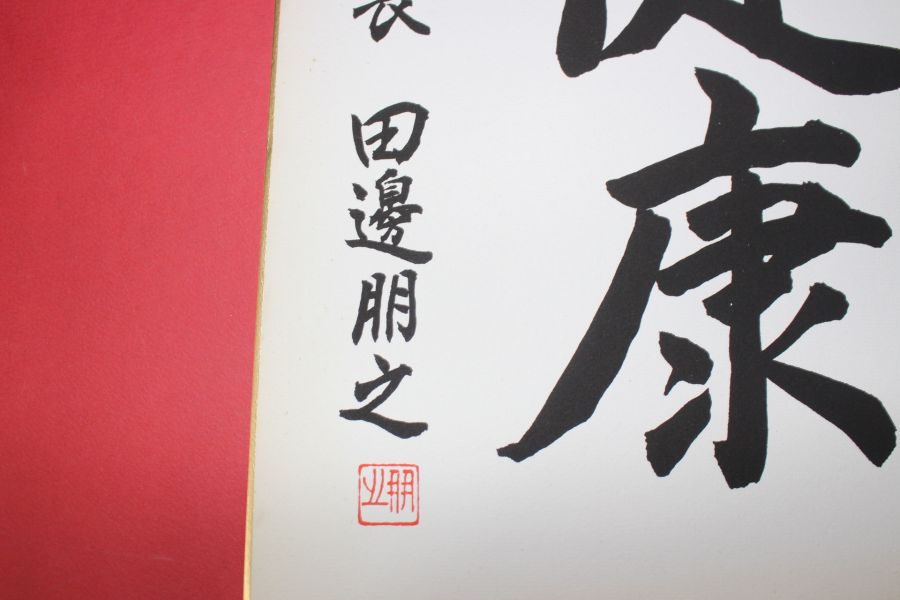 康
長 田邊朋之
朋之